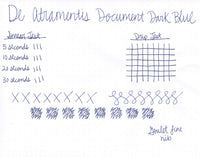 De Atramentis Document Dark Blue
Smear Test
Drip Test
5 seconds
10 seconds
20 seconds
30 seconds
fine
nib